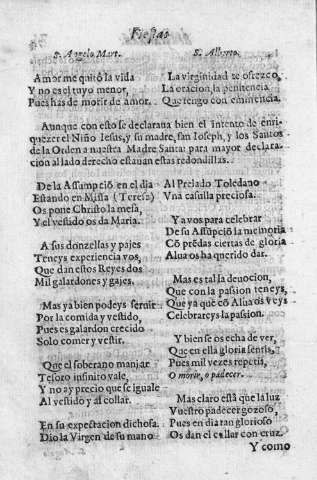 Fiestas
S. Angelo Mart.
Amor me quitô la vida
Y no es el tuyo menor,
Pues has de morir de amor.
S. Alberto.
La virginidad te ofrezco,
La oracion, la penitencia
Que tengo con eminencia.
Aunque con esto se declaraua bien el intento de enri-
quezer el Niño Iesus, y su madre, san Ioseph, y los Santos
de la Orden a nuestra Madre Santa: para mayor declara-
cion al lado derecho estauan estas redondillas.
De la Assumpciō en el dia
Estando en Missa (Teresa)
Os pone Christo la mesa,
Y el vestido os da Maria.
A sus donzellas y pajes
Teneys experiencia vos,
Que dan estos Reyes dos
Mil galardones y gajes.
Mas ya bien podeys seruir
Por la comida y vestido,
Pues es galardon crecido
Solo comer y vestir.
Que el soberano manjar
Tesoro infinito vale,
Y no ay precio que se iguale
Al vestido y al collar.
En su expectacion dichosa.
Dio la Virgen de su mano
Al Prelado Toledano
Vna casulla preciosa.
Y a vos para celebrar
De su Assūpciō la memoria
Cō prēdas ciertas de gloria
Alua os ha querido dar.
Mas es tal la deuocion,
Que con la passion teneys,
Que ya que cō Alua os veys
Celebrareys la passion.
Y bien se os echa de ver,
Que en ella gloria sentis,
Pues mil vezes repetis,
O morir, o padecer.
Mas claro està que la luz
Vuestro padecer gozoso,
Pues en dia tan glorioso
Os dan el collar con cruz.
Y como